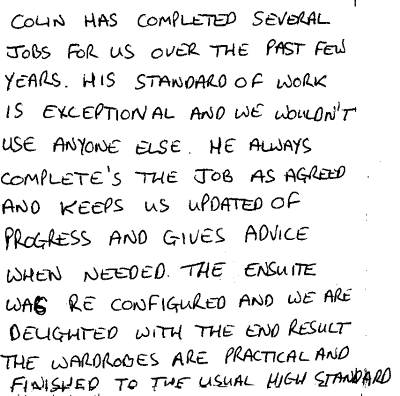 COLIN HAS COMPLETED SEVERAL
JOBS FOR US OVER THE PAST FEW
YEARS. HIS STANDARD OF WORK
IS EXCEPTIONAL AND WE WOULDN'T
USE ANYONE ELSE. HE ALWAYS
COMPLETE'S THE JOB AS AGREED
AND KEEPS US UPDATED OF
PROGRESS AND GIVES ADVICE
WHEN NEEDED. THE ENSUITE
WAS RE CONFIGURED AND WE ARE
DELIGHTED WITH THE END RESULT
THE WARDROBES ARE PRACTICAL AND
FINISHED TO THE USUAL HIGH STANDARD